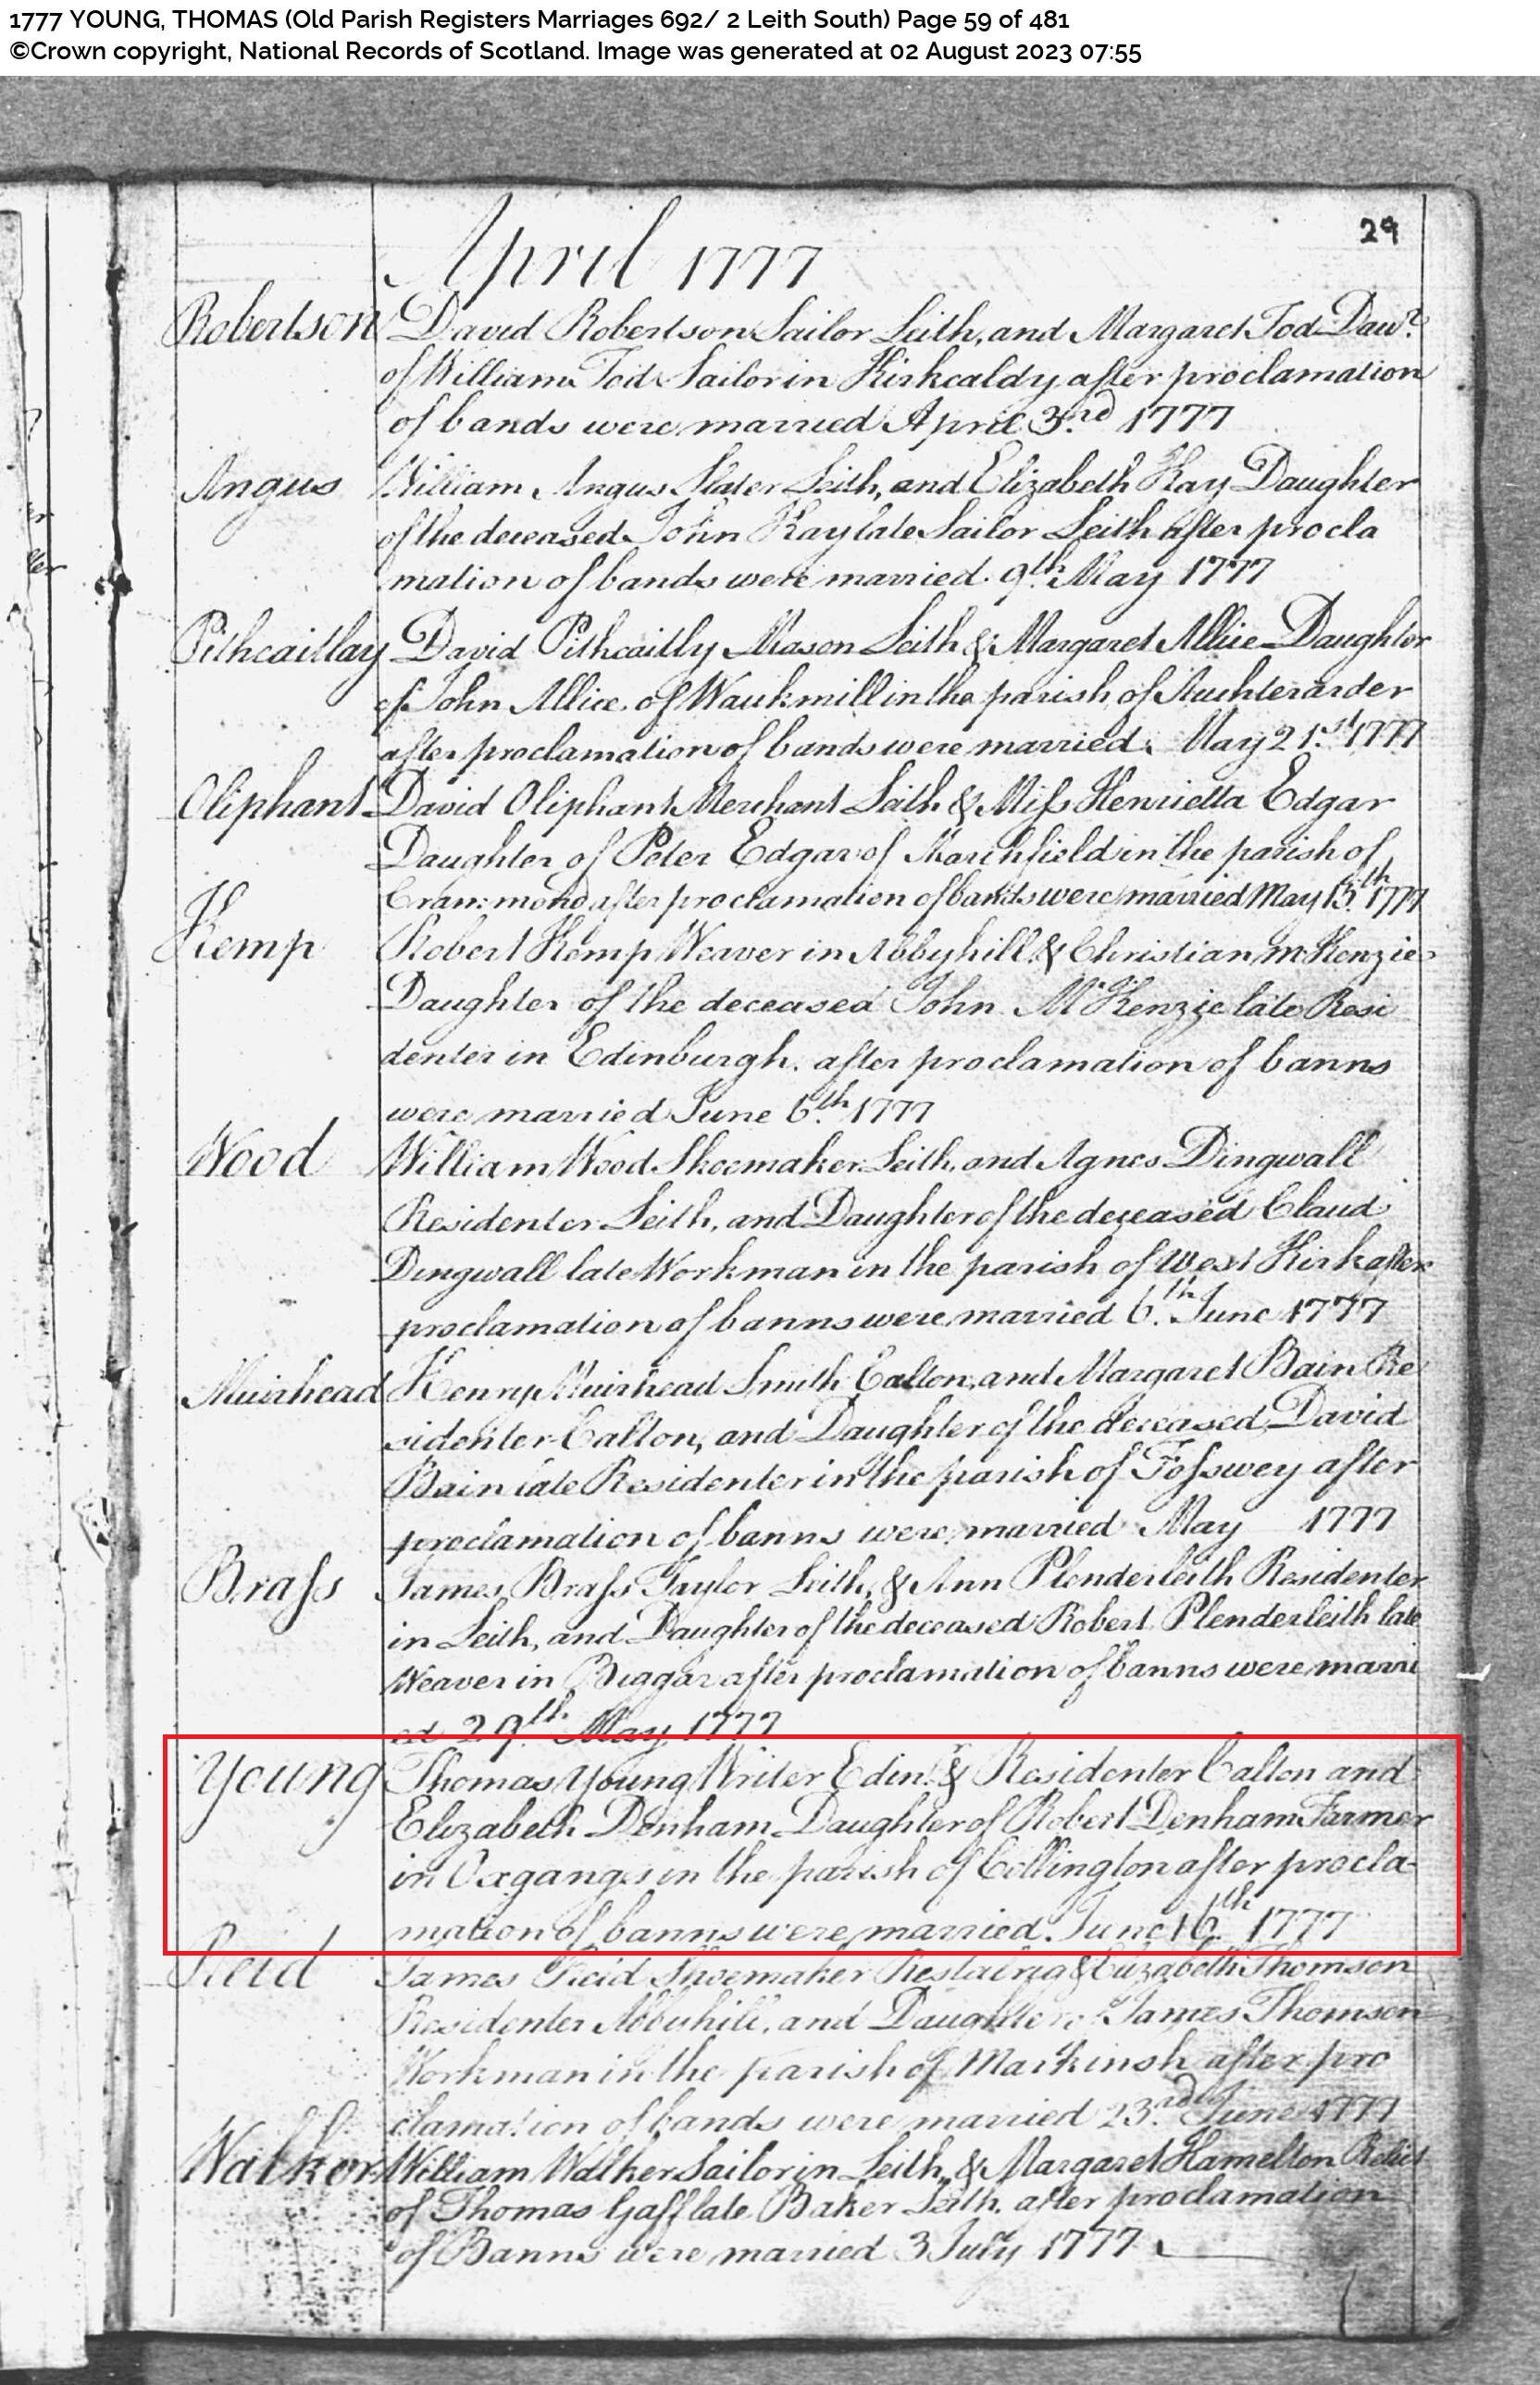 1777 YOUNG, THOMAS (Old Parish Registers Marriages 692/ 2 Leith South) Page 59 of 481
©Crown copyright, National Records of Scotland. Image was generated at 02 August 2023 07:55
29
April 1777
Robertson David Robertson Sailor Leith, and Margaret Tod Dawr.
of William Tod Sailor in Kirkcaldy after proclamation
of bands were married April 3.rd 1777
Angus William Angus Slater Leith, and Elizabeth Kay Daughter
of the deceased John Kay late Sailor Leith after procla
mation of bands were married. 9th. May 1777
Pithcaitlay David Pithcaitly Mason Leith & Margaret Allice Daughter
of John Allice of Waukmill in the parish of Auchterarder
after proclamation of bands were married. May 21.st 1777
Oliphant David Oliphant Merchant Leith & Miss Henrietta Edgar
Daughter of Peter Edgar of Marchfield in the parish of
Crammond after proclamation of bands were married May 13th. 1777
Kemp Robert Kemp Weaver in Abbyhill & Christian McKenzie
Daughter of the deceased John McKenzie late Resi
denter in Edinburgh. after proclamation of banns
were married June 6th. 1777
Wood William Wood Shoemaker Leith, and Agnes Dingwall
Residenter Leith, and Daughter of the deceased Claud
Dingwall late Workman in the parish of West Kirk after
proclamation of banns were married 6th. June 1777
Muirhead Henry Muirhead Smith Calton, and Margaret Bain Re
sidenter Calton, and Daughter of the deceased David
Bain late Residenter in the parish of Fosswey after
proclamation of banns were married May 1777
Brass James Brass Taylor Leith, & Ann Plenderleith Residenter
in Leith, and Daughter of the deceased Robert Plenderleith late
Weaver in Biggar after proclamation of banns were marri
ed 29th. May 1777
Young Thomas Young Writer Edinr. & Residenter Calton and
Elizabeth Denham Daughter of Robert Denham Farmer
in Oxgangs in the parish of Collington after procla-
mation of banns were married. June 16th. 1777
Reid James Reid Shoemaker Restalrig & Elizabeth Thomson
Residenter Abbyhill, and Daughter of James Thomson
Workman in the parish of Markinsh after pro
clamation of bands were married 23.rd June 1777
Walker William Walker Sailor in Leith, & Margaret Hamelton Relict
of Thomas Gaff late Baker Leith. after proclamation
of Banns were married 3 July 1777